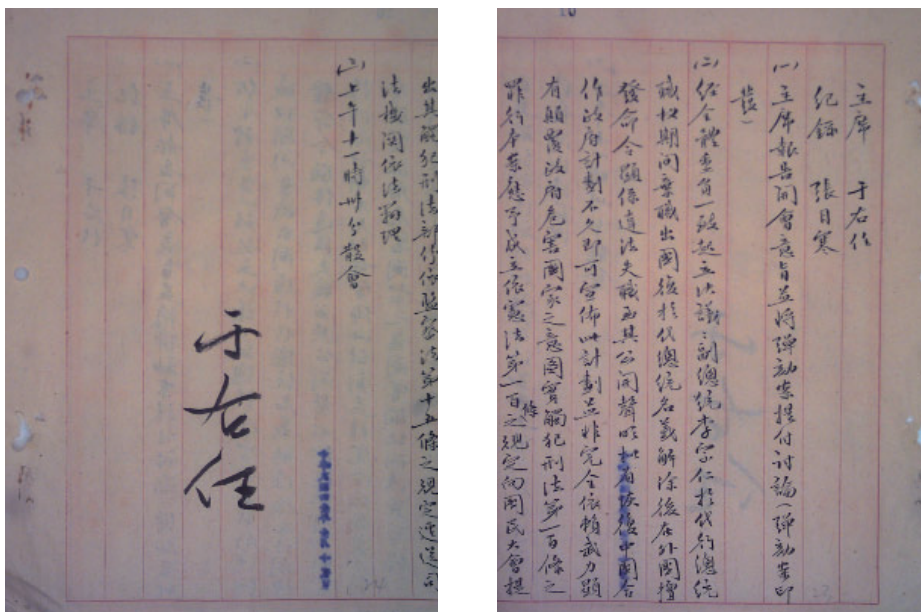 主席 于右任
紀錄 張目寒
(一)主席報告開會意旨並將彈劾案提付討論(彈劾案印
發)
(二)經全體委員一致起立決議：副總統李宗仁於代行總統
職权期间棄職出國後於代總統名義解除後在外國擅
發命令顯係違法失職至其公開聲明如有恢復中國合
作政府計劃不久即可宣佈此計劃並非完全依賴武力顯
有顛覆政府危害國家之意圖實觸犯刑法第一百條之
罪行本案應予成立依憲法第一百條之規定向國民大會提
出其觸犯刑法部份依監察法第十五條之規定逕送司
法機関依法辦理
(三)上午十一時卅分散會
于右任